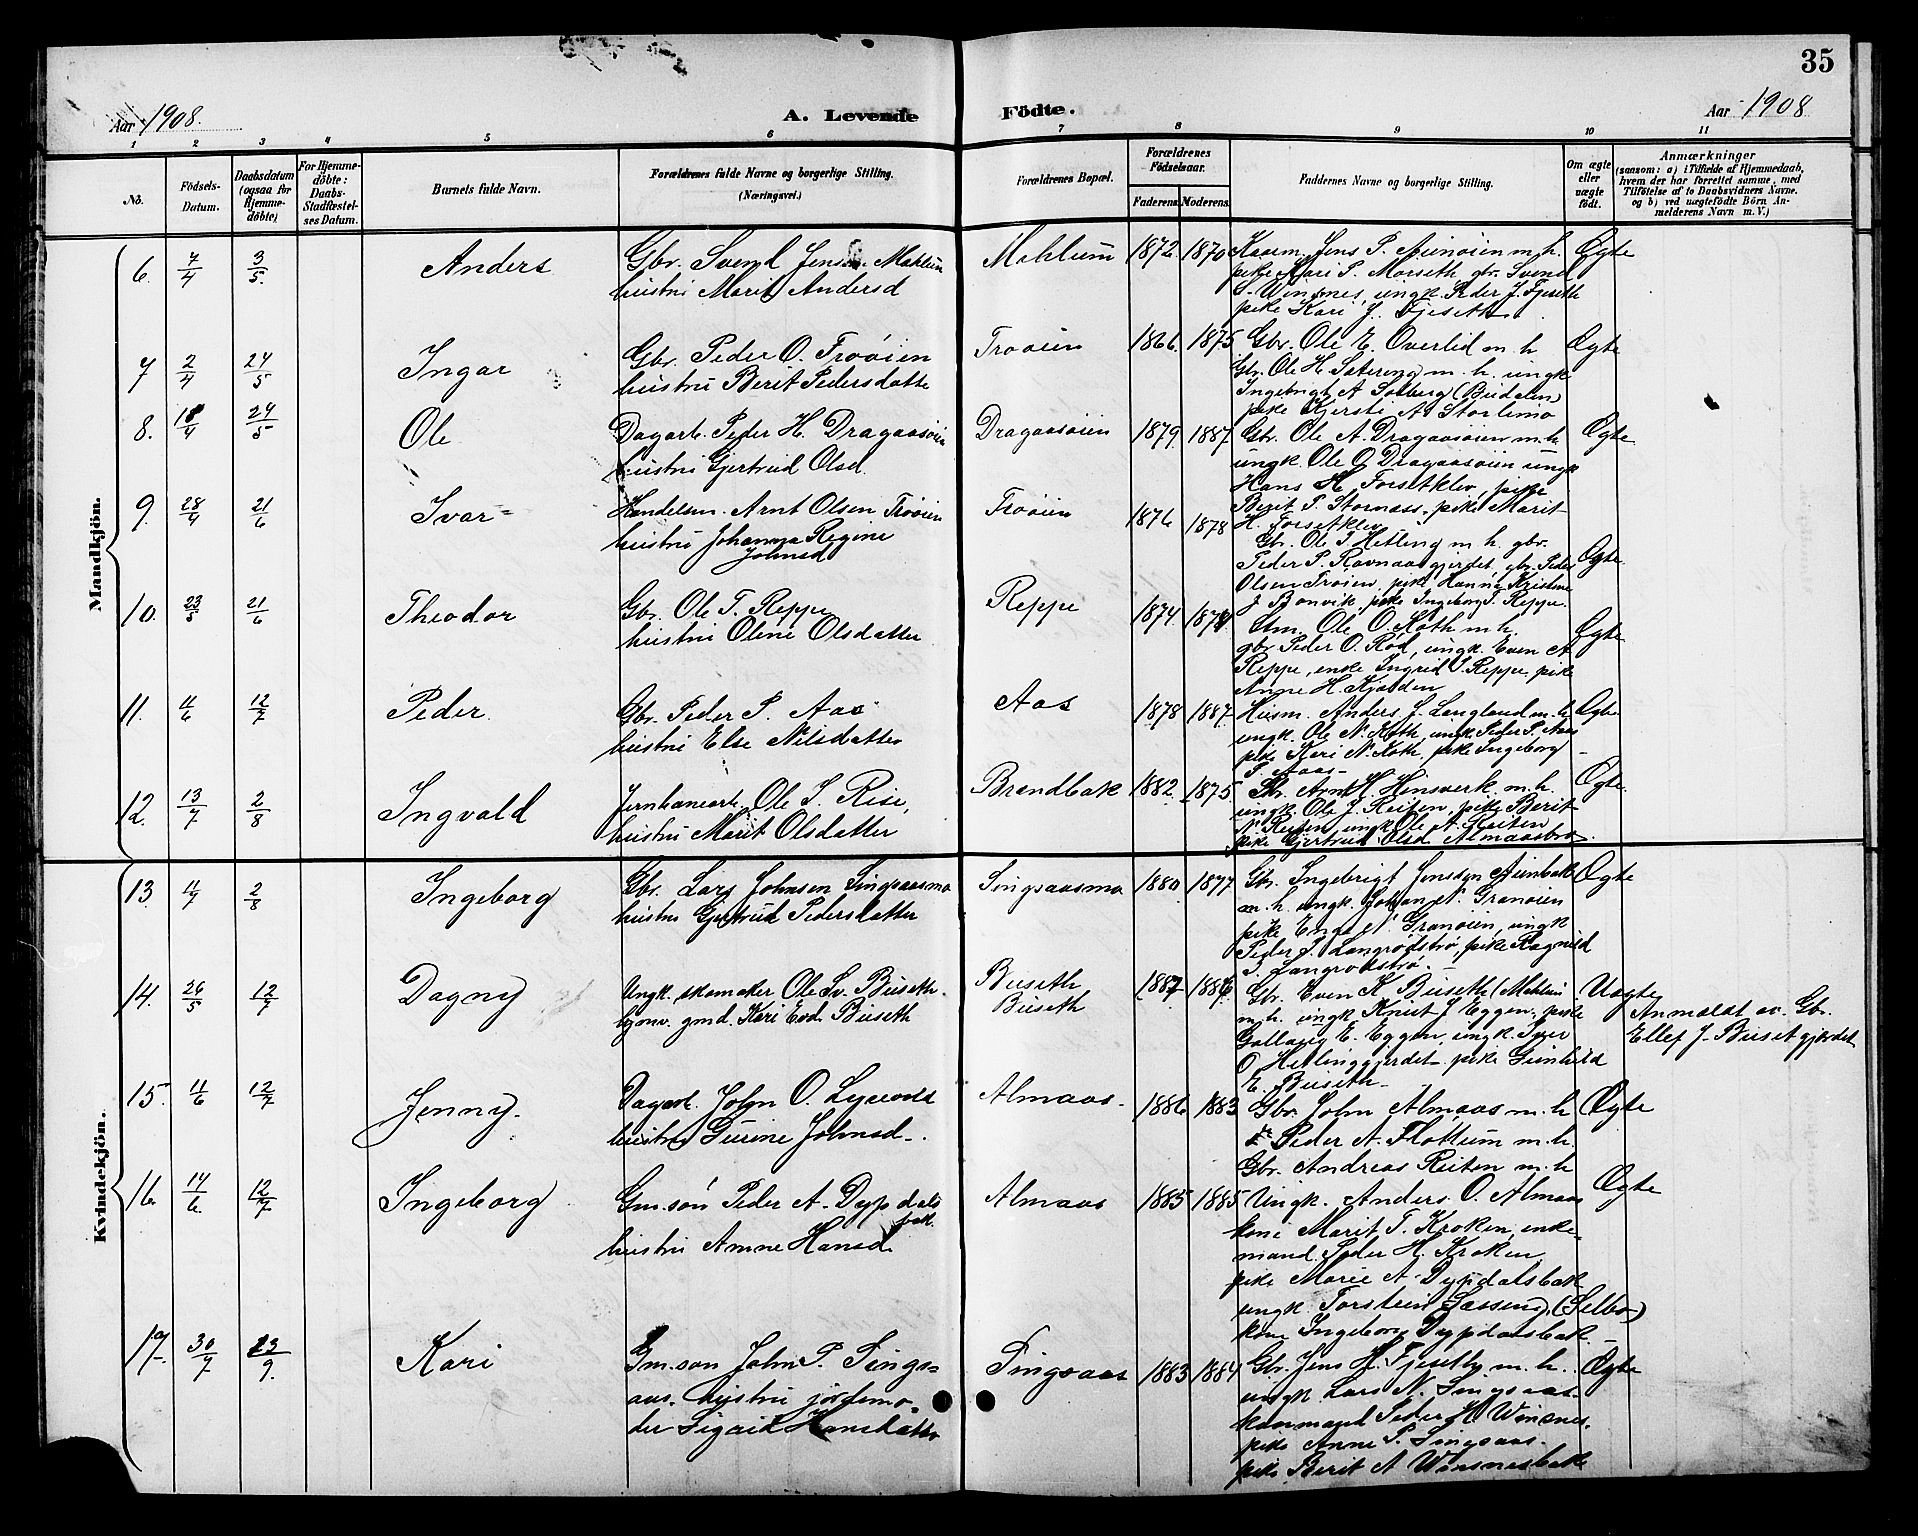 35
Aar 1908.
A. Levende Födte.
Aar 1908
1 2 3 4 5 6 7 8 9 10 11
No.
Födsels-Datum.
Daabsdatum (ogsaa for Hjemme-döbte)
For Hjemme-döbte: Daabs-Stadfæstel-ses Datum.
Barnets fulde Navn.
Forældrenes fulde Navne og borgerlige Stilling. (Næringsvei.)
Forældrenes Bopæl.
Forældrenes Födselsaar.
Faderens. Moderens.
Faddernes Navne og borgerlige Stilling.
Om ægte eller uægte födt.
Anmærkninger
(saasom: a) i Tilfælde af Hjemmedaab,
hvem der har forrettet samme, med
Tilföielse af to Daabsvidners Navne.
og b) ved uægtefödte Börn An-
melderens Navn m. V.)
Mandkjön.
6. 7/4 3/5. Anders
Gbr. Svend Jensen Mahlum
hustru Marit Andersd
Mahlum 1872. 1870
Kaarm. Jens P. Aunøien m. h.
pike Mari P. Morseth gbr. Svend
S. Winsnes, ungk. Peder J. Fjeseth
pike Kari J. Fjeseth.
Ægte
7. 2/4 24/5 Ingar
Gbr. Peder O. Trøøien
hustru Berit Pedersdatte
Trøøien 1866. 1875
Gbr. Ole E. Overlid m. h
Gbr. Ole H. Sætering m. h. ungk
Ingebrigt A. Solberg (Budalen)
pike Kjersti A. Storlimo
Ægte
8. 18/4 24/5 Ole
Dagarb. Peder H. Dragaasøien
hustru Gjertrud Olsd.
Dragaasøien 1879. 1887
Gbr. Ole A. Dragaasøien m. h.
ungk. Ole O. Dragaasøien ungk
Hans H. Forsetkler, pike
Berit P. Stornæss, pike Marit
H. Forsetkler
Ægte
9. 28/4 21/6 Ivar
Handelsm. Arnt Olsen Trøøien
hustru Johanna Regine
Johnsd
Trøøien 1876 1878
Gbr. Ole J. Hetling m. h. gbr.
Peder P. Ravnaasgjerdet, gbr. Peder
Olsen Trøien, pike Hanna Kristine
J. Bonvik, pike Ingeborg T. Reppe.
Ægte
10. 23/5 21/6 Theodor
Gbr. Ole T. Reppe
hustru Oline Olsdatter
Reppe 1874
Stm. Ole O. Koth m. h.
gbr. Peder O. Rød, ungk. Even A
Reppe, enke Ingrid T. Reppe, pike
Anne H. Kjelden
Ægte
11. 11/6 12/7 Peder.
Gbr. Peder P. Aas
hustru Else Nilsdatter
Aas 1878 1887
Husm. Anders J. Langland m. h
ungk. Ole N. Koth, ungk. Peder P. Aas
pike Kari N. Koth, pike Ingeborg
P. Aaas
Ægte
12. 13/7 2/8 Ingvald
Jernbanearb. Ole I. Rise,
hustru Marit Olsdatter
Brændbak 1882 1875
Gbr. Arnt H. Hinsverk m. h.
ungk. Ole J. Reiten, pike Berit
N. Reiten, ungk. Ole A. Reiten
pike Gjertrud Olsd. Almaasbro
Ægte
Kvindekjön.
13. 11/7 2/8 Ingeborg
Gbr. Lars Johnsen Singsaasmo
hustru Gjertrud Pedersdatter
Singsaasmo 1880 1877
Gbr. Ingebrigt Jensen Aunbak
m. h. ungk. Johan N. Granøien
pike Enga N. Granøien, ungk
Peder J. Langrødstrø, pike Ragnild
J. Langrødstrø.
Ægte
14. 26/5 12/7 Dagny
Ungk. skomaker Ole Sv. Buseth.
gmd. Kari Evd. Buseth
Buseth
Buseth 1887 1886
Gbr. Even K. Buseth (Mahlum
m. h. ungk. Knut J. Eggen, pike
Gollaug E. Eggen, ungk. Iver
O Hetlinggjerdet pike Gunhild
E. Buseth
Uægte
Anmeldt av Gbr.
Ellef J. Busetgjerdet
15. 11/6 12/7 Jenny.
Dagarb. John O.
hustru Gurine Johnsd.
Almaas. 1886 1883
Gbr. John Almaas m. h
Peder A. Flottum m. h.
Gbr. Andreas Reiten m. h
Ægte
16. 14/6 12/7 Ingeborg
Gm.søn Peder A. Dypdals
bak.
hustru Anne Hansd.
Almaas 1885 1885
Ungk. Anders O. Almaas
kone Marit T. Kroken, enke-
mand Peder H. Kroken
pike Marie A. Dypdalsbak
ungk. Torstein Sæsseng, (Selbo)
kone Ingeborg Dypdalsbak
Ægte
17. 30/7 13/9 Kari
Gm.søn John P. Sings-
aas. hustru jordemo-
der Sigrid Hansdatter
Singsaas 1883 1884
Gbr. Jens H. Fjeseth m. h.
ungk. Lars N. Singsaas
kaarmand Peder H. Winsnes.
pike Anne P. Singsaas.
pike Berit A Winsnesbak
Ægte